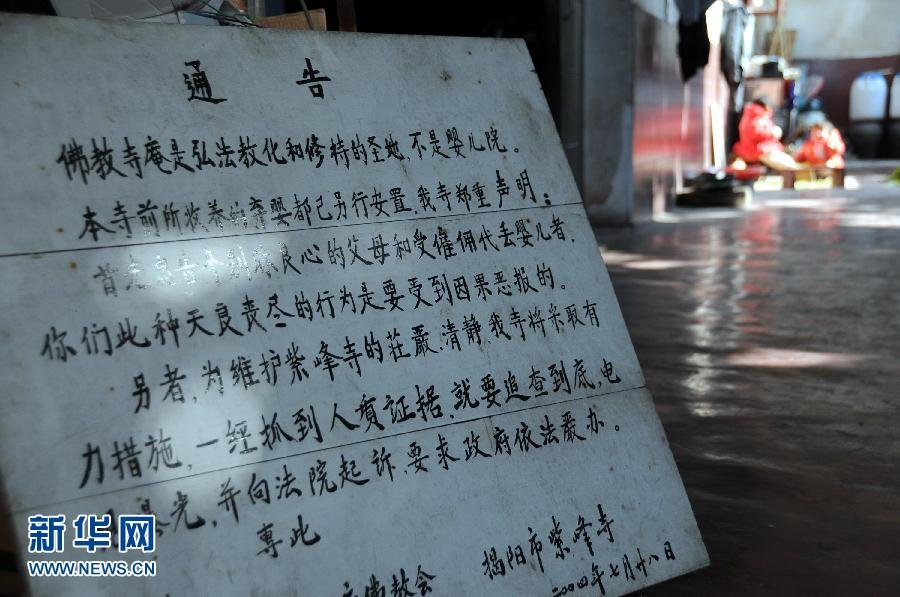 通告
佛教寺庵是弘法教化和修持的圣地,不是婴儿院。
本寺前所收养的弃婴都已另行安置,我寺郑重声明:
首先 良心的父母和受催佣代丢婴儿者,
你们此种天良丧尽的行为是要受到因果恶报的。
另者,为维护紫峰寺的莊嚴、清静,我寺将采取有
力措施,一经抓到人贠证据,就要追查到底,电
光,并向法院起诉,要求政府依法嚴办。
專此
佛教会 揭阳市紫峰寺
二00四年七月廿八日
新华网
WWW.NEWS.CN